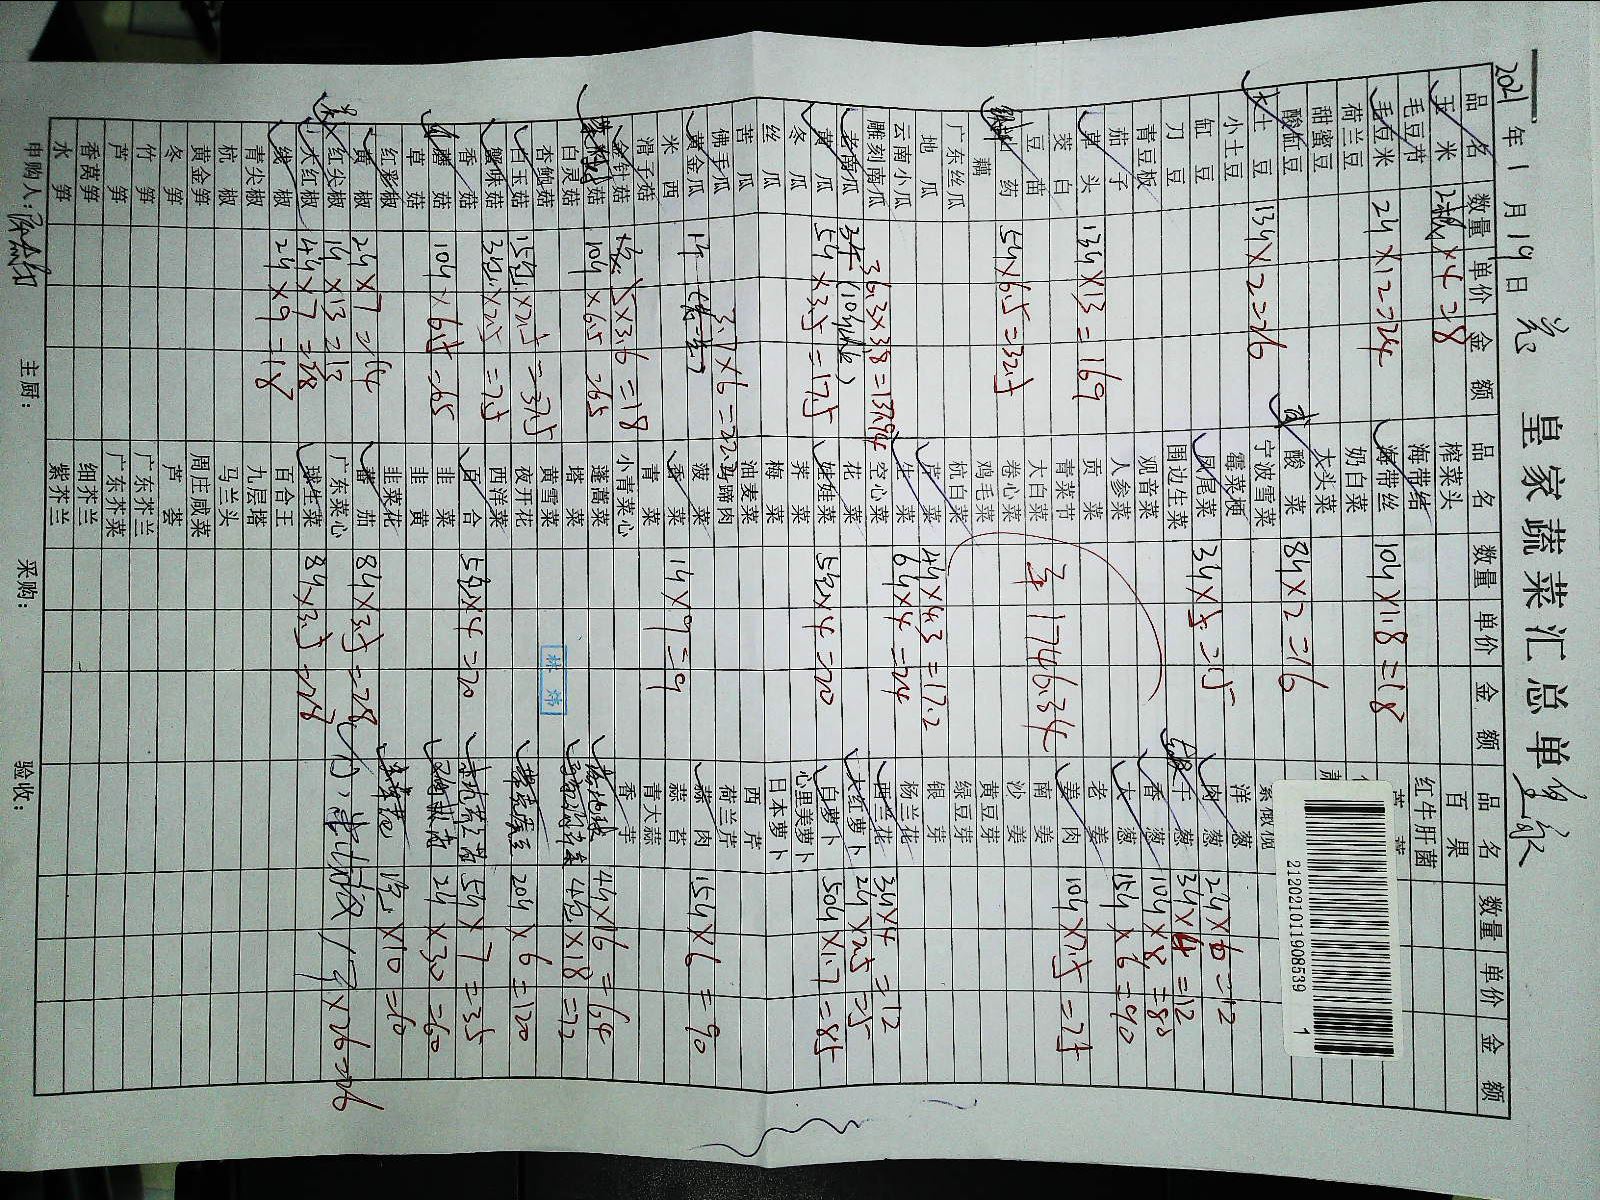 皇家蔬菜汇总单
2021年1月19日
品名 数量 单价 金额 品名 数量 单价 金额 品名 数量 单价 金额
玉米 ×4=8
毛豆节
毛豆米 2斤×12=24
荷兰豆
甜蜜豆
酸缸豆
土豆 13斤×2=26
小土豆
缸豆
刀豆
青豆板
茄子
草头 13斤×13=169
茭白
豆苗
山药 5斤×6.5=32.5
藕
广东丝瓜
地瓜
云南小瓜
雕刻南瓜 36.3×3.8=137.94
老南瓜
黄瓜 5斤×3.5=17.5
冬瓜
丝瓜
苦瓜
佛手瓜 3.7×6=22.2
黄金瓜 1斤
西米
滑子菇
金针菇 5×3.6=18
菇 10斤×6.5=65
白灵菇
杏鲍菇
白玉菇 15包×2.5=37.5
蟹味菇 3包×2.5=7.5
香菇
蘑菇 10斤×6.5=65
草菇
红彩椒
黄椒 2斤×7=14
红尖椒 1斤×13=13
大红椒 4斤×7=28
线椒 2斤×9=18
青尖椒
杭椒
黄金笋
冬笋
竹笋
芦笋
香莴笋
水笋
榨菜头
海带结
海带丝 10斤×1.8=18
奶白菜
大头菜
酸菜 8斤×2=16
宁波雪菜
霉菜梗
凤尾菜 3斤×5=15
围边生菜
观音菜
人参菜
贡菜
青菜节
大白菜 1746.34
卷心菜
鸡毛菜
杭白菜
芹菜 4斤×4.3=17.2
生菜 6斤×4=24
空心菜
花菜
娃娃菜 5包×4=20
荠菜
梅菜
油麦菜
马蹄肉
菠菜
香菜 1斤×9=9
青菜
小青菜心
蓬蒿菜
塔菜
黄雪菜
夜开花
西洋菜
百合 5包×4=20
韭菜
韭黄
韭菜花
蕃茄 8斤×3.5=28
广东菜心
球生菜 8斤×3.5=28
百合王
九层塔
马兰头
周庄咸菜
芦荟
广东芥兰
广东芥菜
细芥兰
紫芥兰
百果
红牛肝菌
212021011908539 1
洋葱
肉葱 2斤×6=12
干葱 3斤×4=12
香葱 10斤×8=80
大葱 15斤×6=90
老姜
姜肉 10斤×2.5=25
南姜
沙姜
黄豆芽
绿豆芽
银芽
杨兰花
西兰花 3斤×4=12
大红萝卜 2斤×2.5=5
白萝卜 50斤×1.7=85
心里美萝卜
日本萝卜
西芹
荷兰芹
蒜肉 15斤×6=90
蒜苔
青大蒜
香芋
4斤×16=64
4包×18=72
20斤×6=120
5斤×7=35
2斤×30=60
×10=10
×26=26
林炜
申购人: 主厨: 采购: 验收: